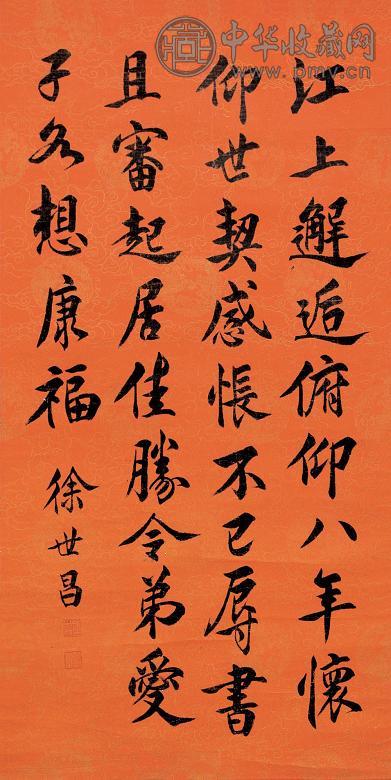 江上邂逅俯仰八年懷
仰世契感悵不已辱書
且審起居佳勝令弟愛
子各想康福
徐世昌
中华收藏网
www.pmv.cn